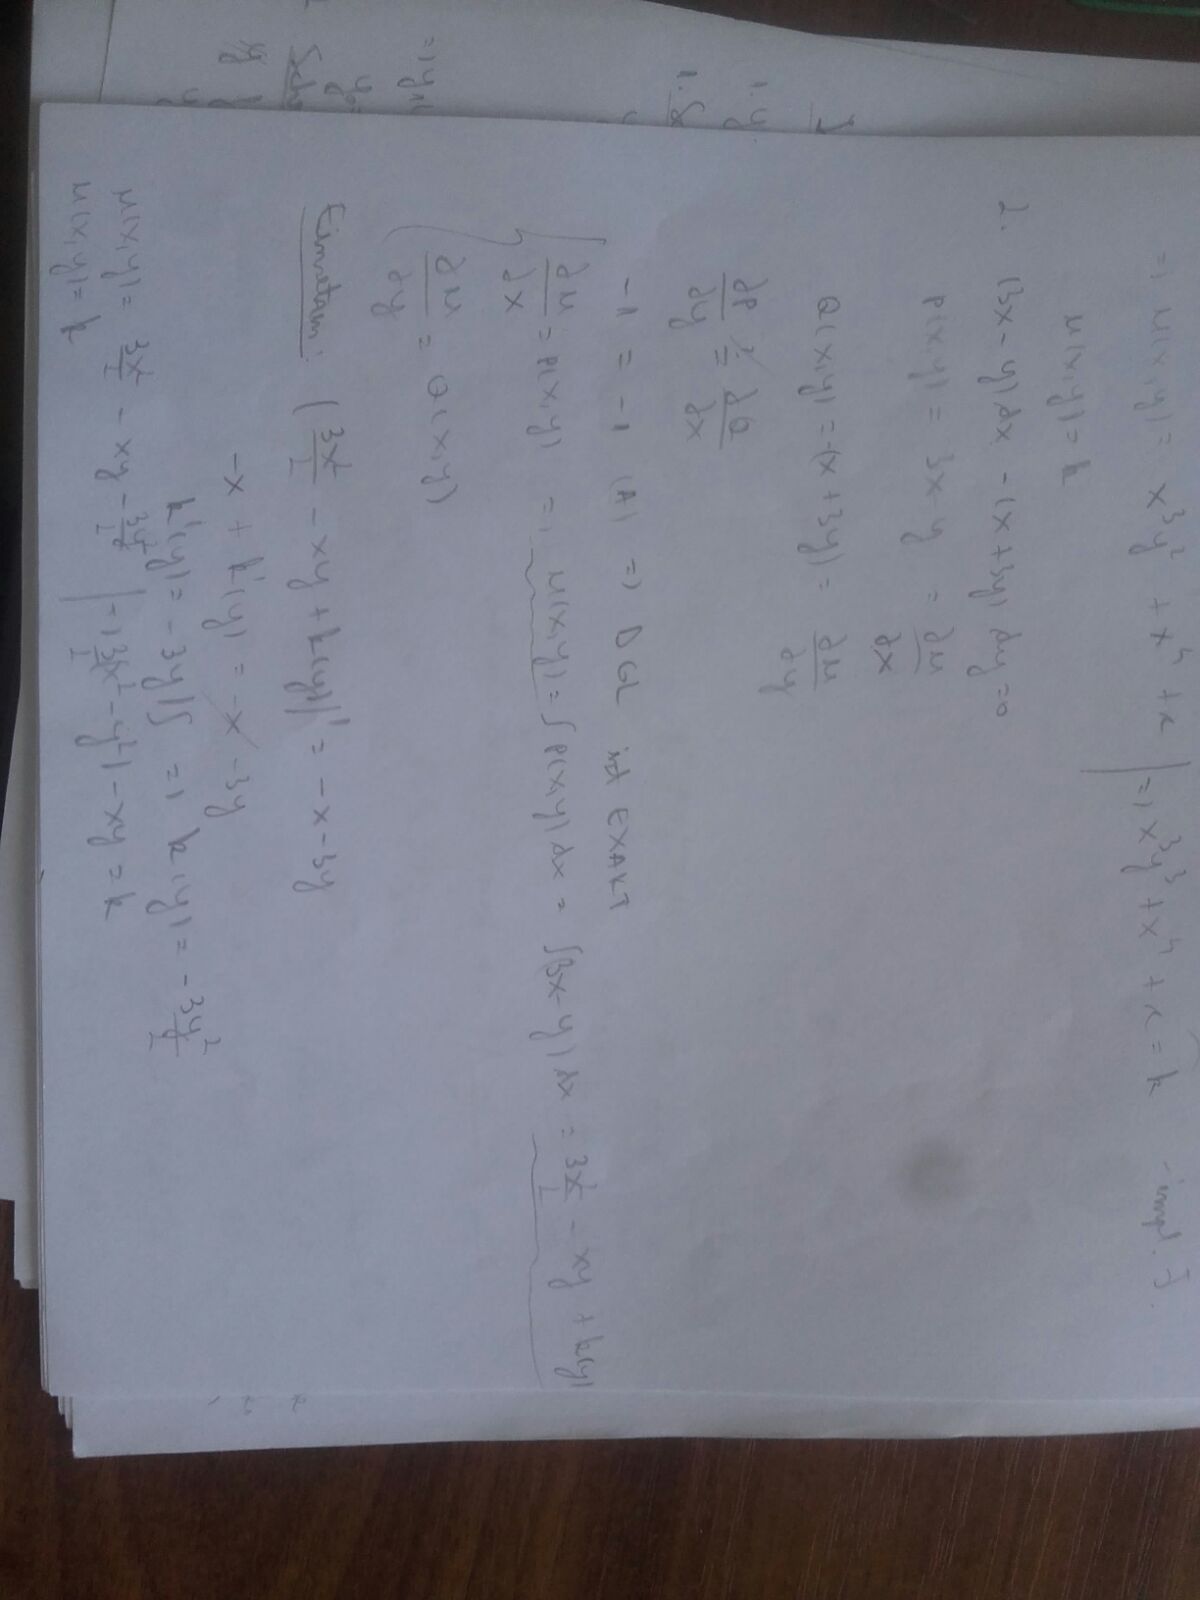 => u(x,y) = x³y² + x⁴ + x | => x³y³ + x⁴ + x = k - impl. F.
u(x,y) = k
2. (3x - y) dx - (x + 3y) dy = 0
P(x,y) = 3x - y = ∂u/∂x
Q(x,y) = -(x + 3y) = ∂u/∂y
∂P/∂y ≟ ∂Q/∂x
-1 = -1 (A) => DGL ist EXAKT
∂u/∂x = P(x,y) => u(x,y) = ∫ P(x,y) dx = ∫(3x - y) dx = 3x²/2 - xy + k(y)
∂u/∂y = Q(x,y)
(3x²/2 - xy + k(y))' = -x - 3y
-x + k'(y) = -x - 3y
k'(y) = -3y |∫ => k(y) = -3y²/2
u(x,y) = 3x²/2 - xy - 3y²/2 | => 3/2(x² - y²) - xy = k
u(x,y) = k